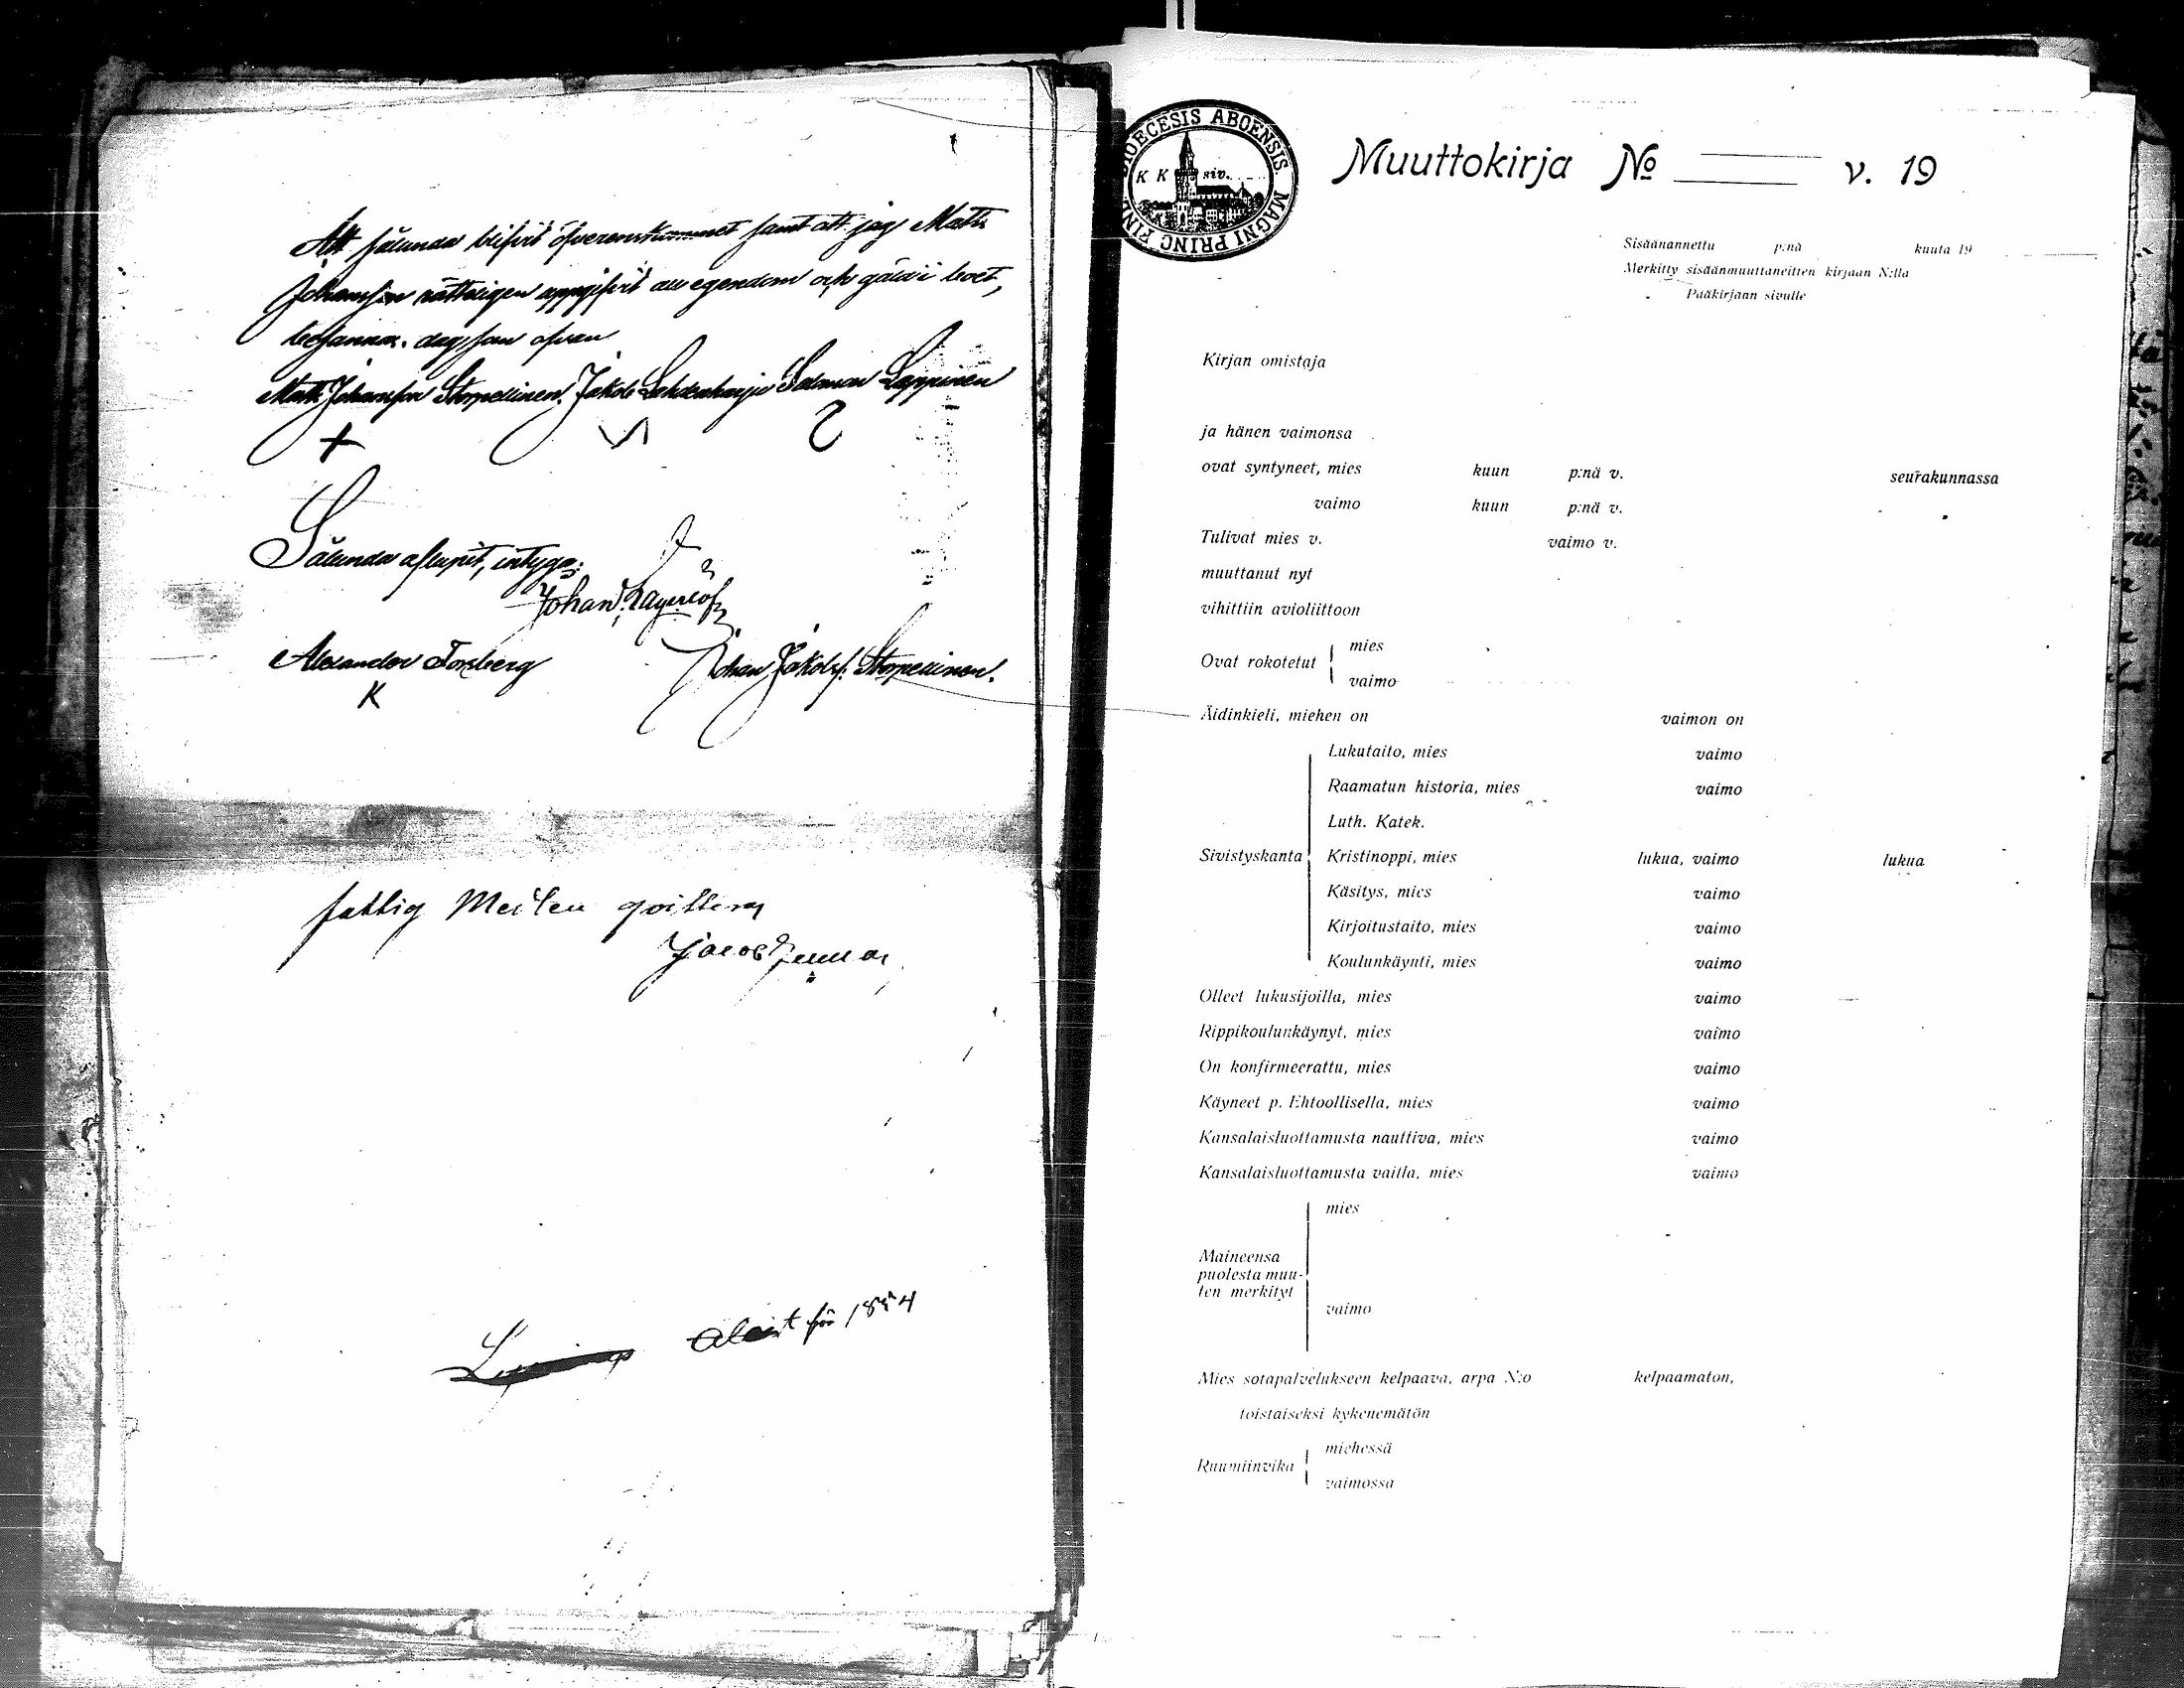 Att sålunda blifvit öfverenskommet samt att jag Matts
Johansson rätteligen uppgifvit all egendom och gäld i boet,
bekännes. dag som ofvan
Matts Johansson Storpellinen. Jakob Lahdenharju Salomon Lappinen
Sålunda aflupit, intyga;
Johan Lagerlöf
Alexander Forsberg Johan Jakobs: Storpellinen.
K
fattig Medlen qvitteras
Jacob
för 1854
DIOECESIS ABOENSIS. MAGNI PRINC FINL
K K siv.
Muuttokirja No v. 19
Sisäänannettu p:nä kuuta 19
Merkitty sisäänmuuttaneitten kirjaan N:lla
Pääkirjaan sivulle
Kirjan omistaja
ja hänen vaimonsa
ovat syntyneet, mies kuun p:nä v. seurakunnassa
vaimo kuun p:nä v.
Tulivat mies v. vaimo v.
muuttanut nyt
vihittiin avioliittoon
Ovat rokotetut mies
vaimo
Äidinkieli, miehen on vaimon on
Lukutaito, mies vaimo
Raamatun historia, mies vaimo
Luth. Katek.
Sivistyskanta Kristinoppi, mies lukua, vaimo lukua
Käsitys, mies vaimo
Kirjoitustaito, mies vaimo
Koulunkäynti, mies vaimo
Olleet lukusijoilla, mies vaimo
Rippikoulunkäynyt, mies vaimo
On konfirmeerattu, mies vaimo
Käyneet p. Ehtoollisella, mies vaimo
Kansalaisluottamusta nauttiva, mies vaimo
Kansalaisluottamusta vailla, mies vaimo
mies
Maineensa
puolesta muu-
ten merkityt
vaimo
Mies sotapalvelukseen kelpaava, arpa N:o kelpaamaton,
toistaiseksi kykenemätön
miehessä
Ruumiinvika
vaimossa